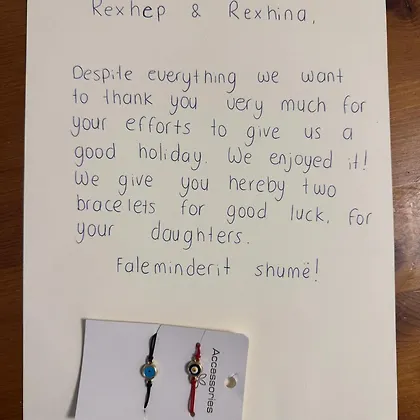 Rexhep & Rexhina,
Despite everything we want
to thank you very much for
your efforts to give us a
good holiday. We enjoyed it!
We give you hereby two
bracelets for good luck, for
your daughters.
Faleminderit shumë!
Accessories